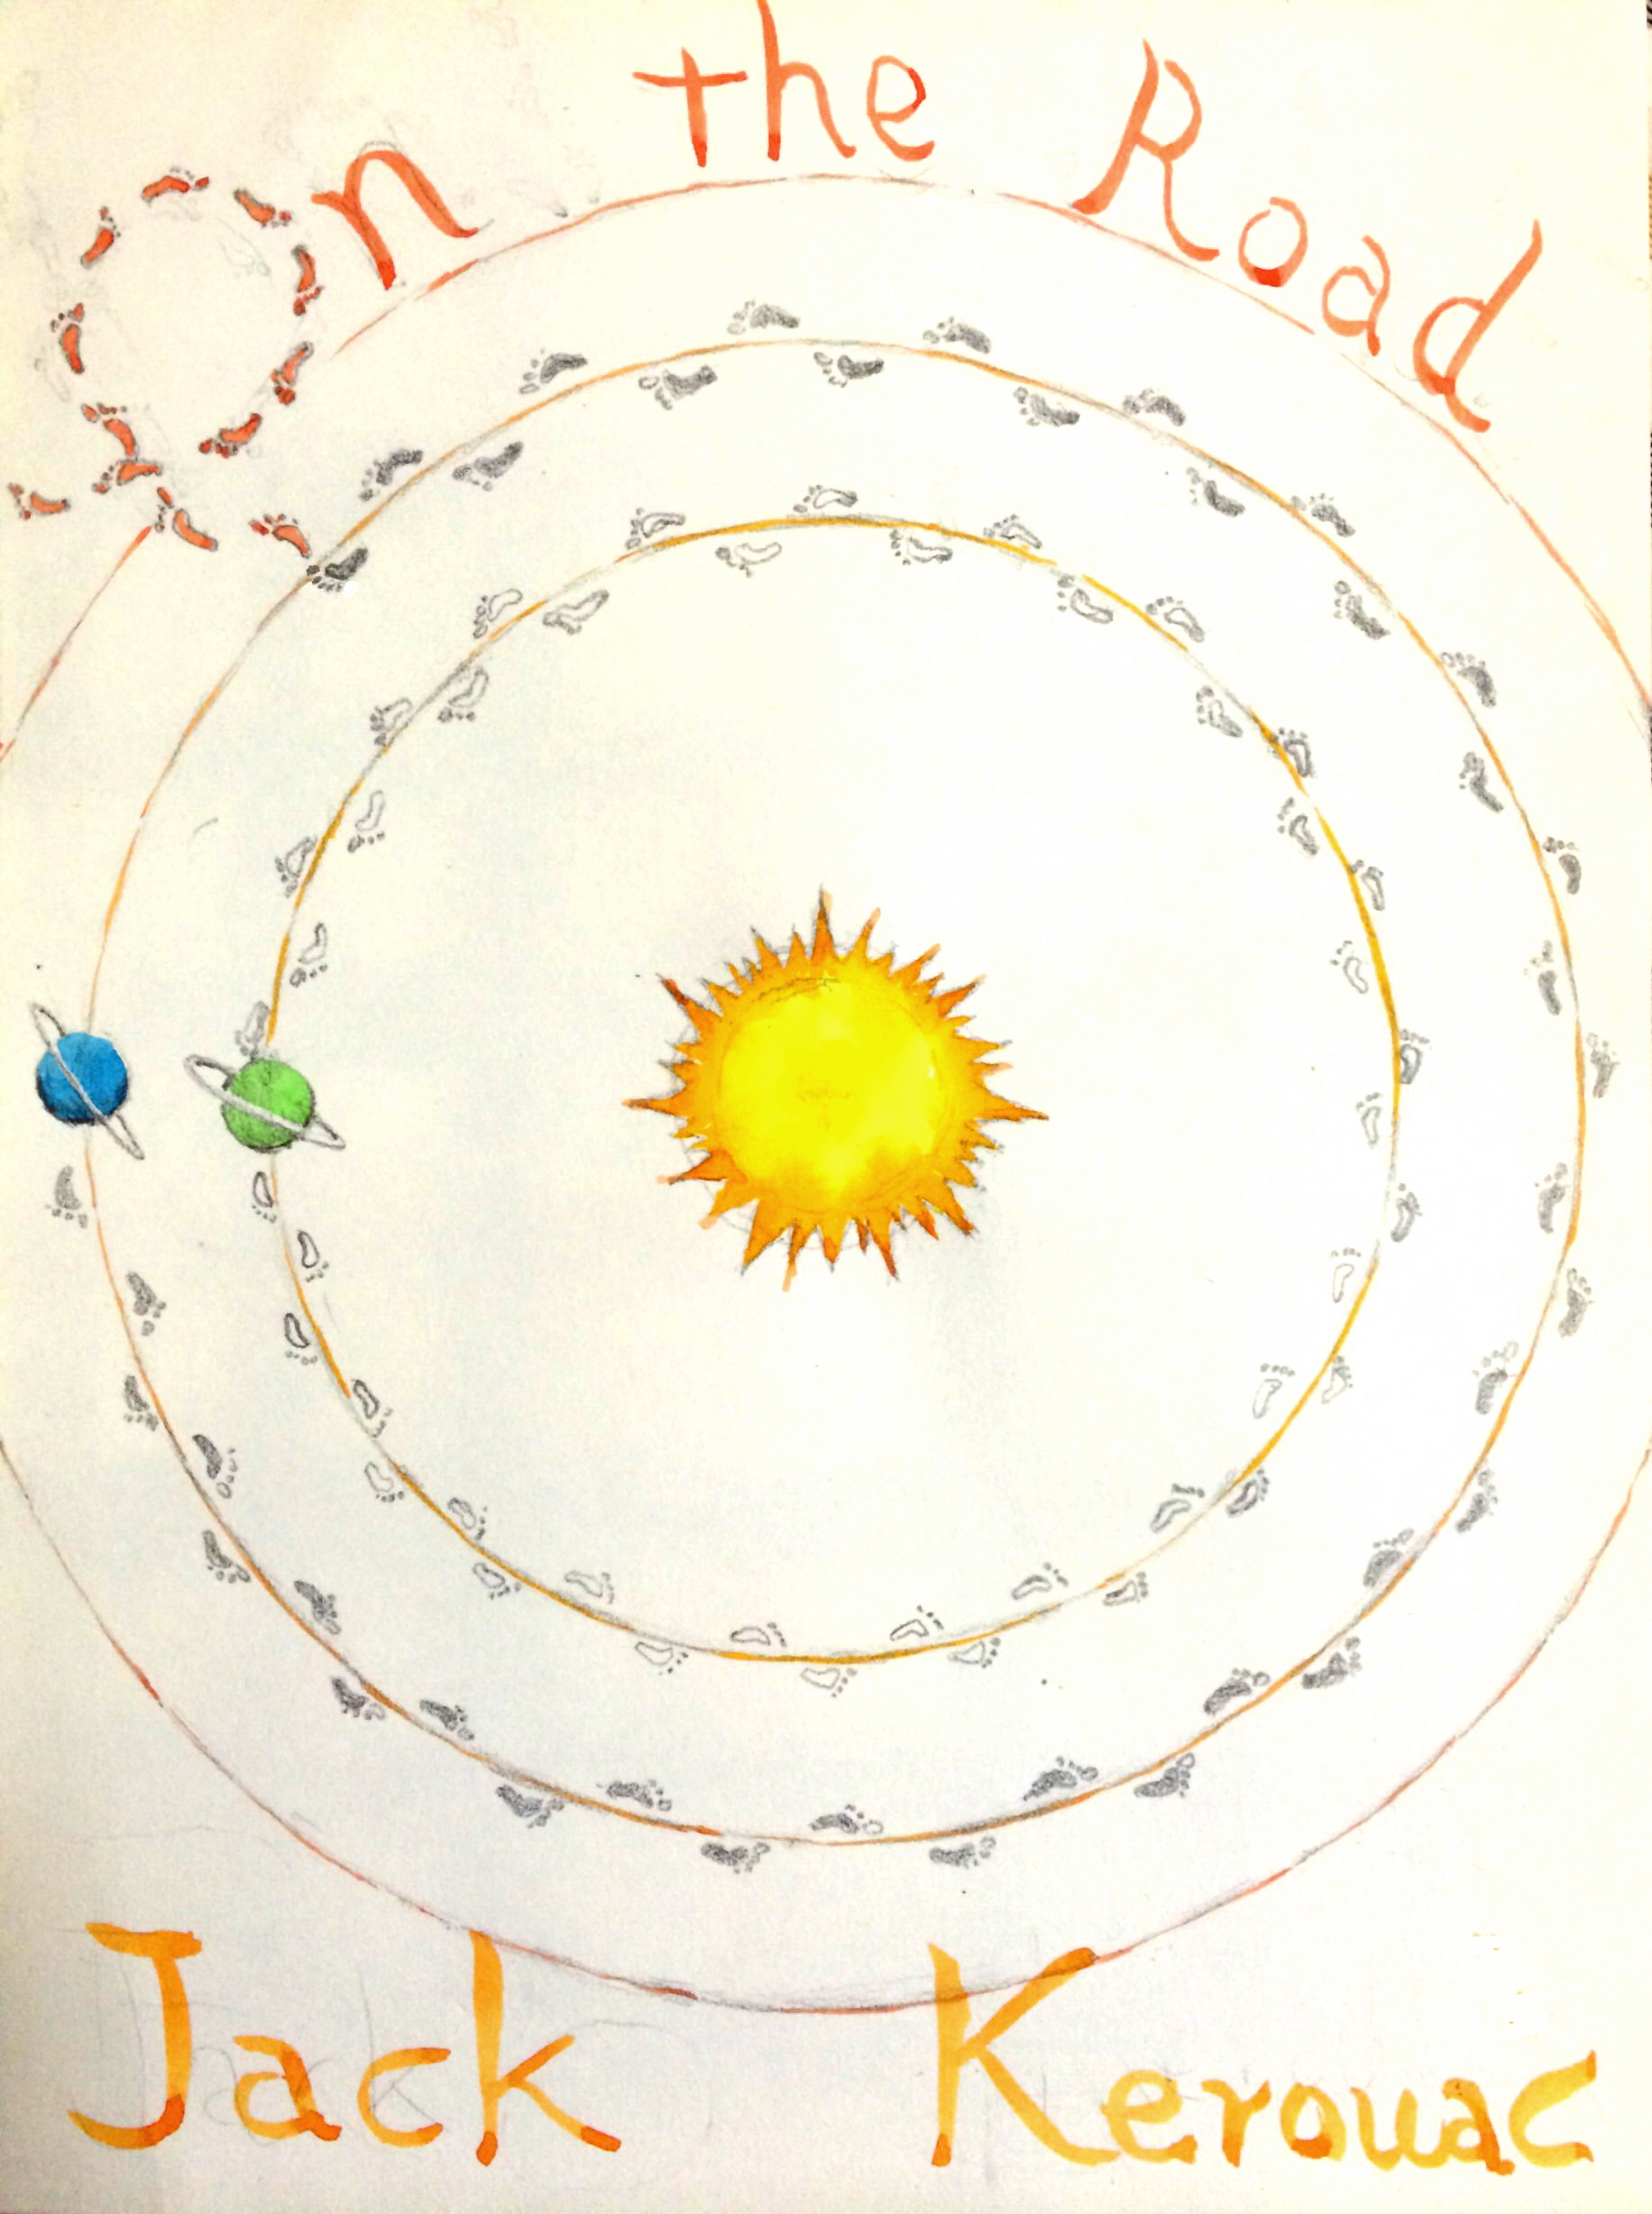 On the Road
Jack Kerouac